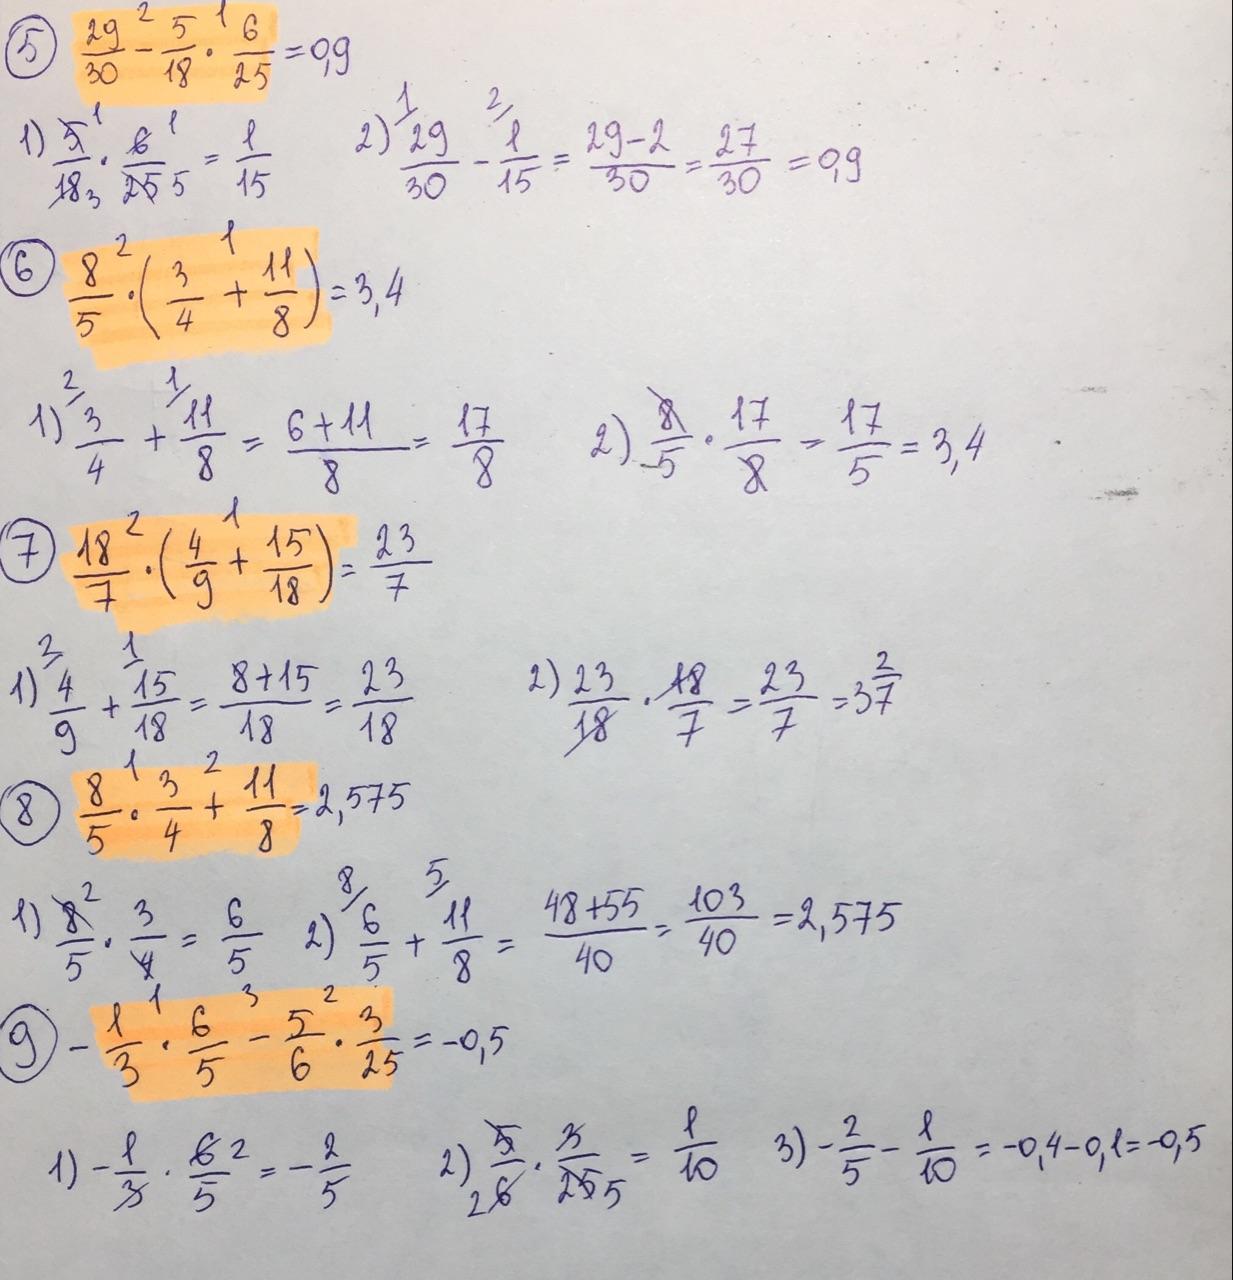 5 29/30 - 5/18 · 6/25 = 0,9
1) 5/18 · 6/25 = 1/15 2) 29/30 - 1/15 = (29-2)/30 = 27/30 = 0,9
6 8/5 · (3/4 + 11/8) = 3,4
1) 3/4 + 11/8 = (6+11)/8 = 17/8 2) 8/5 · 17/8 = 17/5 = 3,4
7 18/7 · (4/9 + 15/18) = 23/7
1) 4/9 + 15/18 = (8+15)/18 = 23/18 2) 23/18 · 18/7 = 23/7 = 3 2/7
8 8/5 · 3/4 + 11/8 = 2,575
1) 8/5 · 3/4 = 6/5 2) 6/5 + 11/8 = (48+55)/40 = 103/40 = 2,575
9 - 1/3 · 6/5 - 5/6 · 3/25 = -0,5
1) - 1/3 · 6/5 = - 2/5 2) 5/6 · 3/25 = 1/10 3) - 2/5 - 1/10 = -0,4-0,1=-0,5